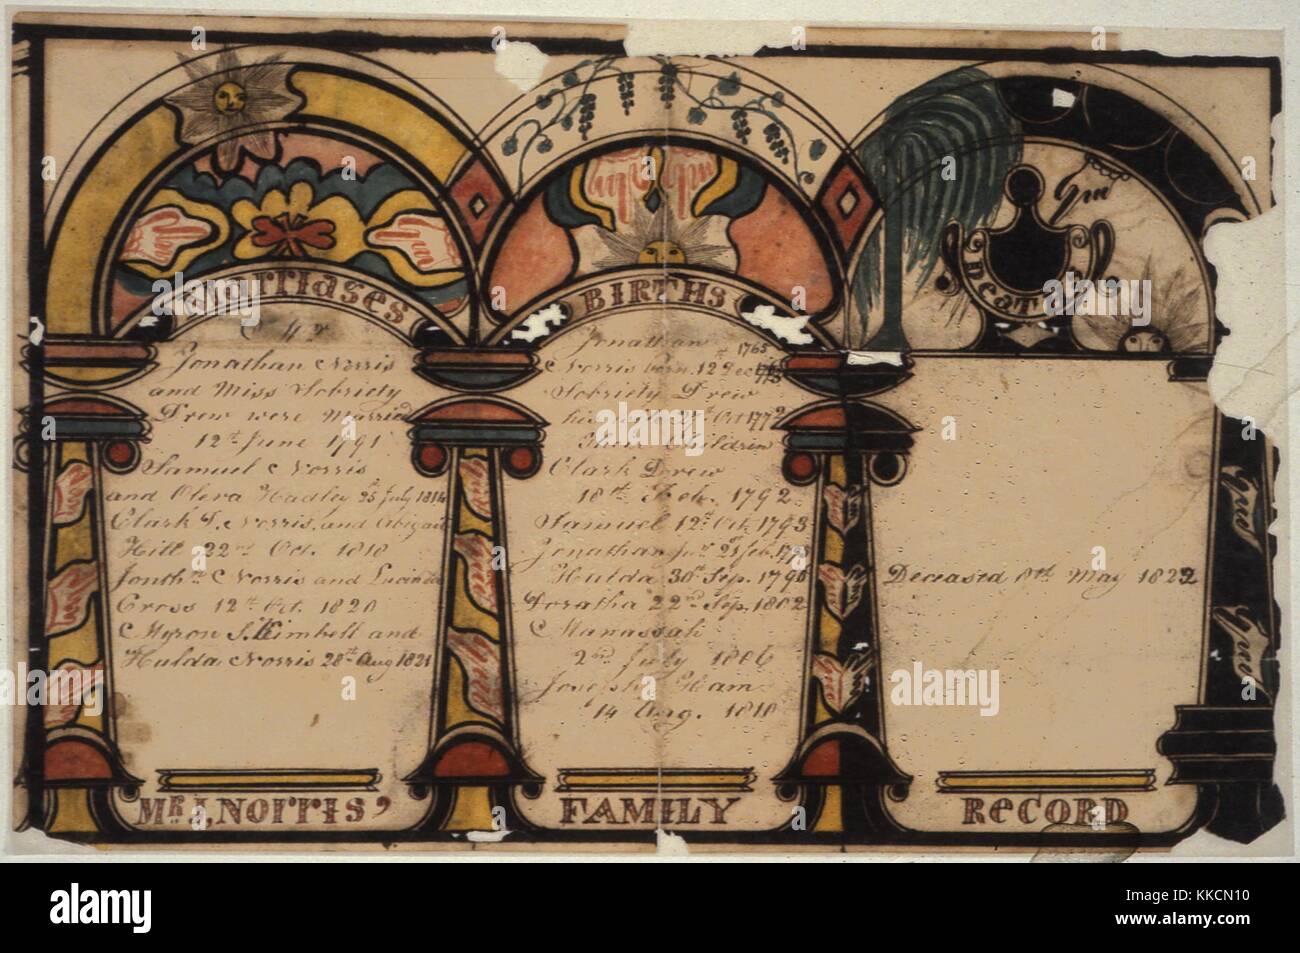 Marriages
Mr
Jonathan Norris
and Miss Sobriety
Drew were Married
12th June 1791
Samuel Norris
and Olera Hadley 25th July 1814
Clark D. Norris and Abigail
Hill 22nd Oct. 1818
Jonthn Norris and Lucinda
Cross 12th Oct. 1820
Myron S. Kimbell and
Hulda Norris 28th Aug 1821
BIRTHS
Jonathan
Norris born 12 Dec 1765
Sobriety Drew
Oct 1772
Children
Clark Drew
18th Feb. 1792
Samuel 12th Oct. 1793
Jonathan Jur
Hulda 30th Sep. 1798
22nd Sep. 1802
Manassah
2nd July 1806
Joseph Ham
14 Aug. 1810
DEATHS
Deceased 8th May 1822
MR J, NORRIS' FAMILY RECORD
alamy
Image ID: KKCN10
www.alamy.com